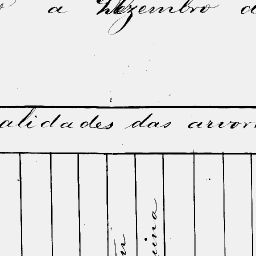 a Dezembro d
alidades das arvor
uina